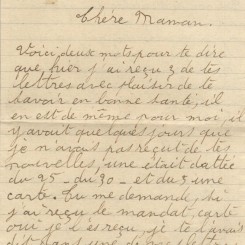 Chère Maman.
Voici deux mots pour te dire
que hier j'ai reçu 3 de tes
lettres avec plaisir de te
savoir en bonne santé, il
en est de même pour moi, il
y avait quelques jours que
je n'avais pas reçu de tes
nouvelles, une était dattée
du 25 - du 30 - et du 3 une
carte. Tu me demande, si
j'ai reçu le mandat, carte
oui je l'ai reçu, je te l'avais
dit dans une de mes lettres